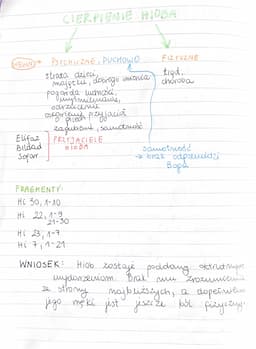 CIERPIENIE HIOBA
PSYCHICZNE, DUCHOWE
FIZYCZNE
strata dzieci,
majątku, dobrego imienia
pogarda ludzi,
odrzucenie
przyjaciół
samotność
trąd,
choroba
Elifaz
Bildad
Sofar
PRZYJACIELE
HIOBA
samotność
→ brak odpowiedzi
Boga
FRAGMENTY:
Hi 30, 1-10
Hi 22, 1-9
21-30
Hi 23, 1-7
Hi 7, 1-21
WNIOSEK: Hiob zostaje poddany okrutnym
wydarzeniom. Brak mu zrozumienia
ze strony najbliższych, a dopełnieniem
jego męki jest jeszcze ból fizyczny.